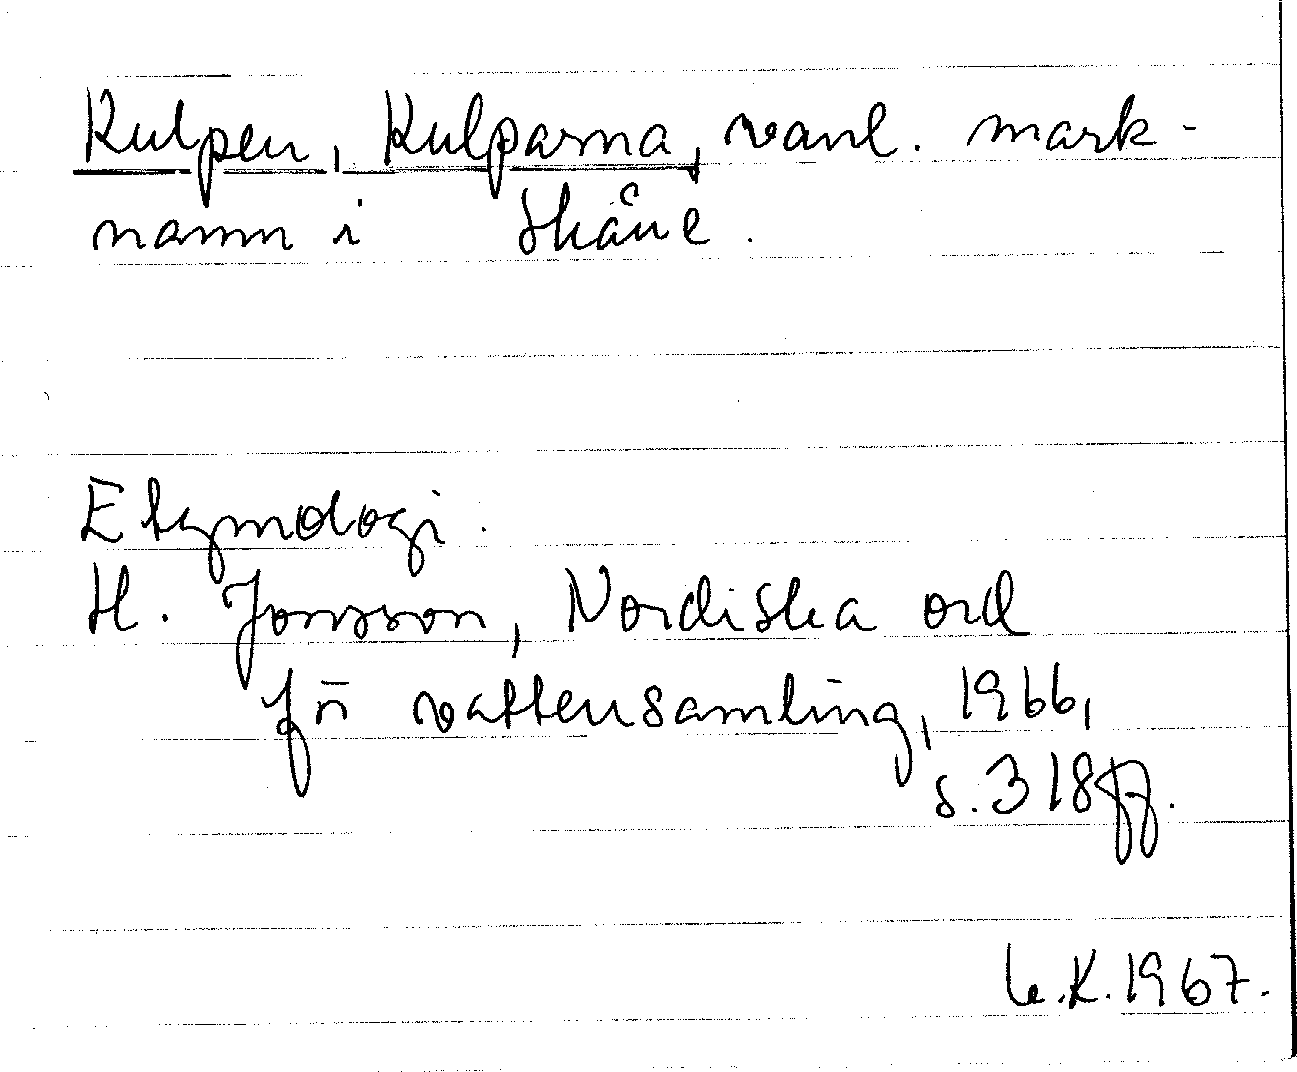 Kulpen, Kulparna, vanl. mark-
namn i Skåne.
Etymologi.
H. Jonsson, Nordiska ord
för vattensamling, 1966,
s. 318 ff.
K. 1967.